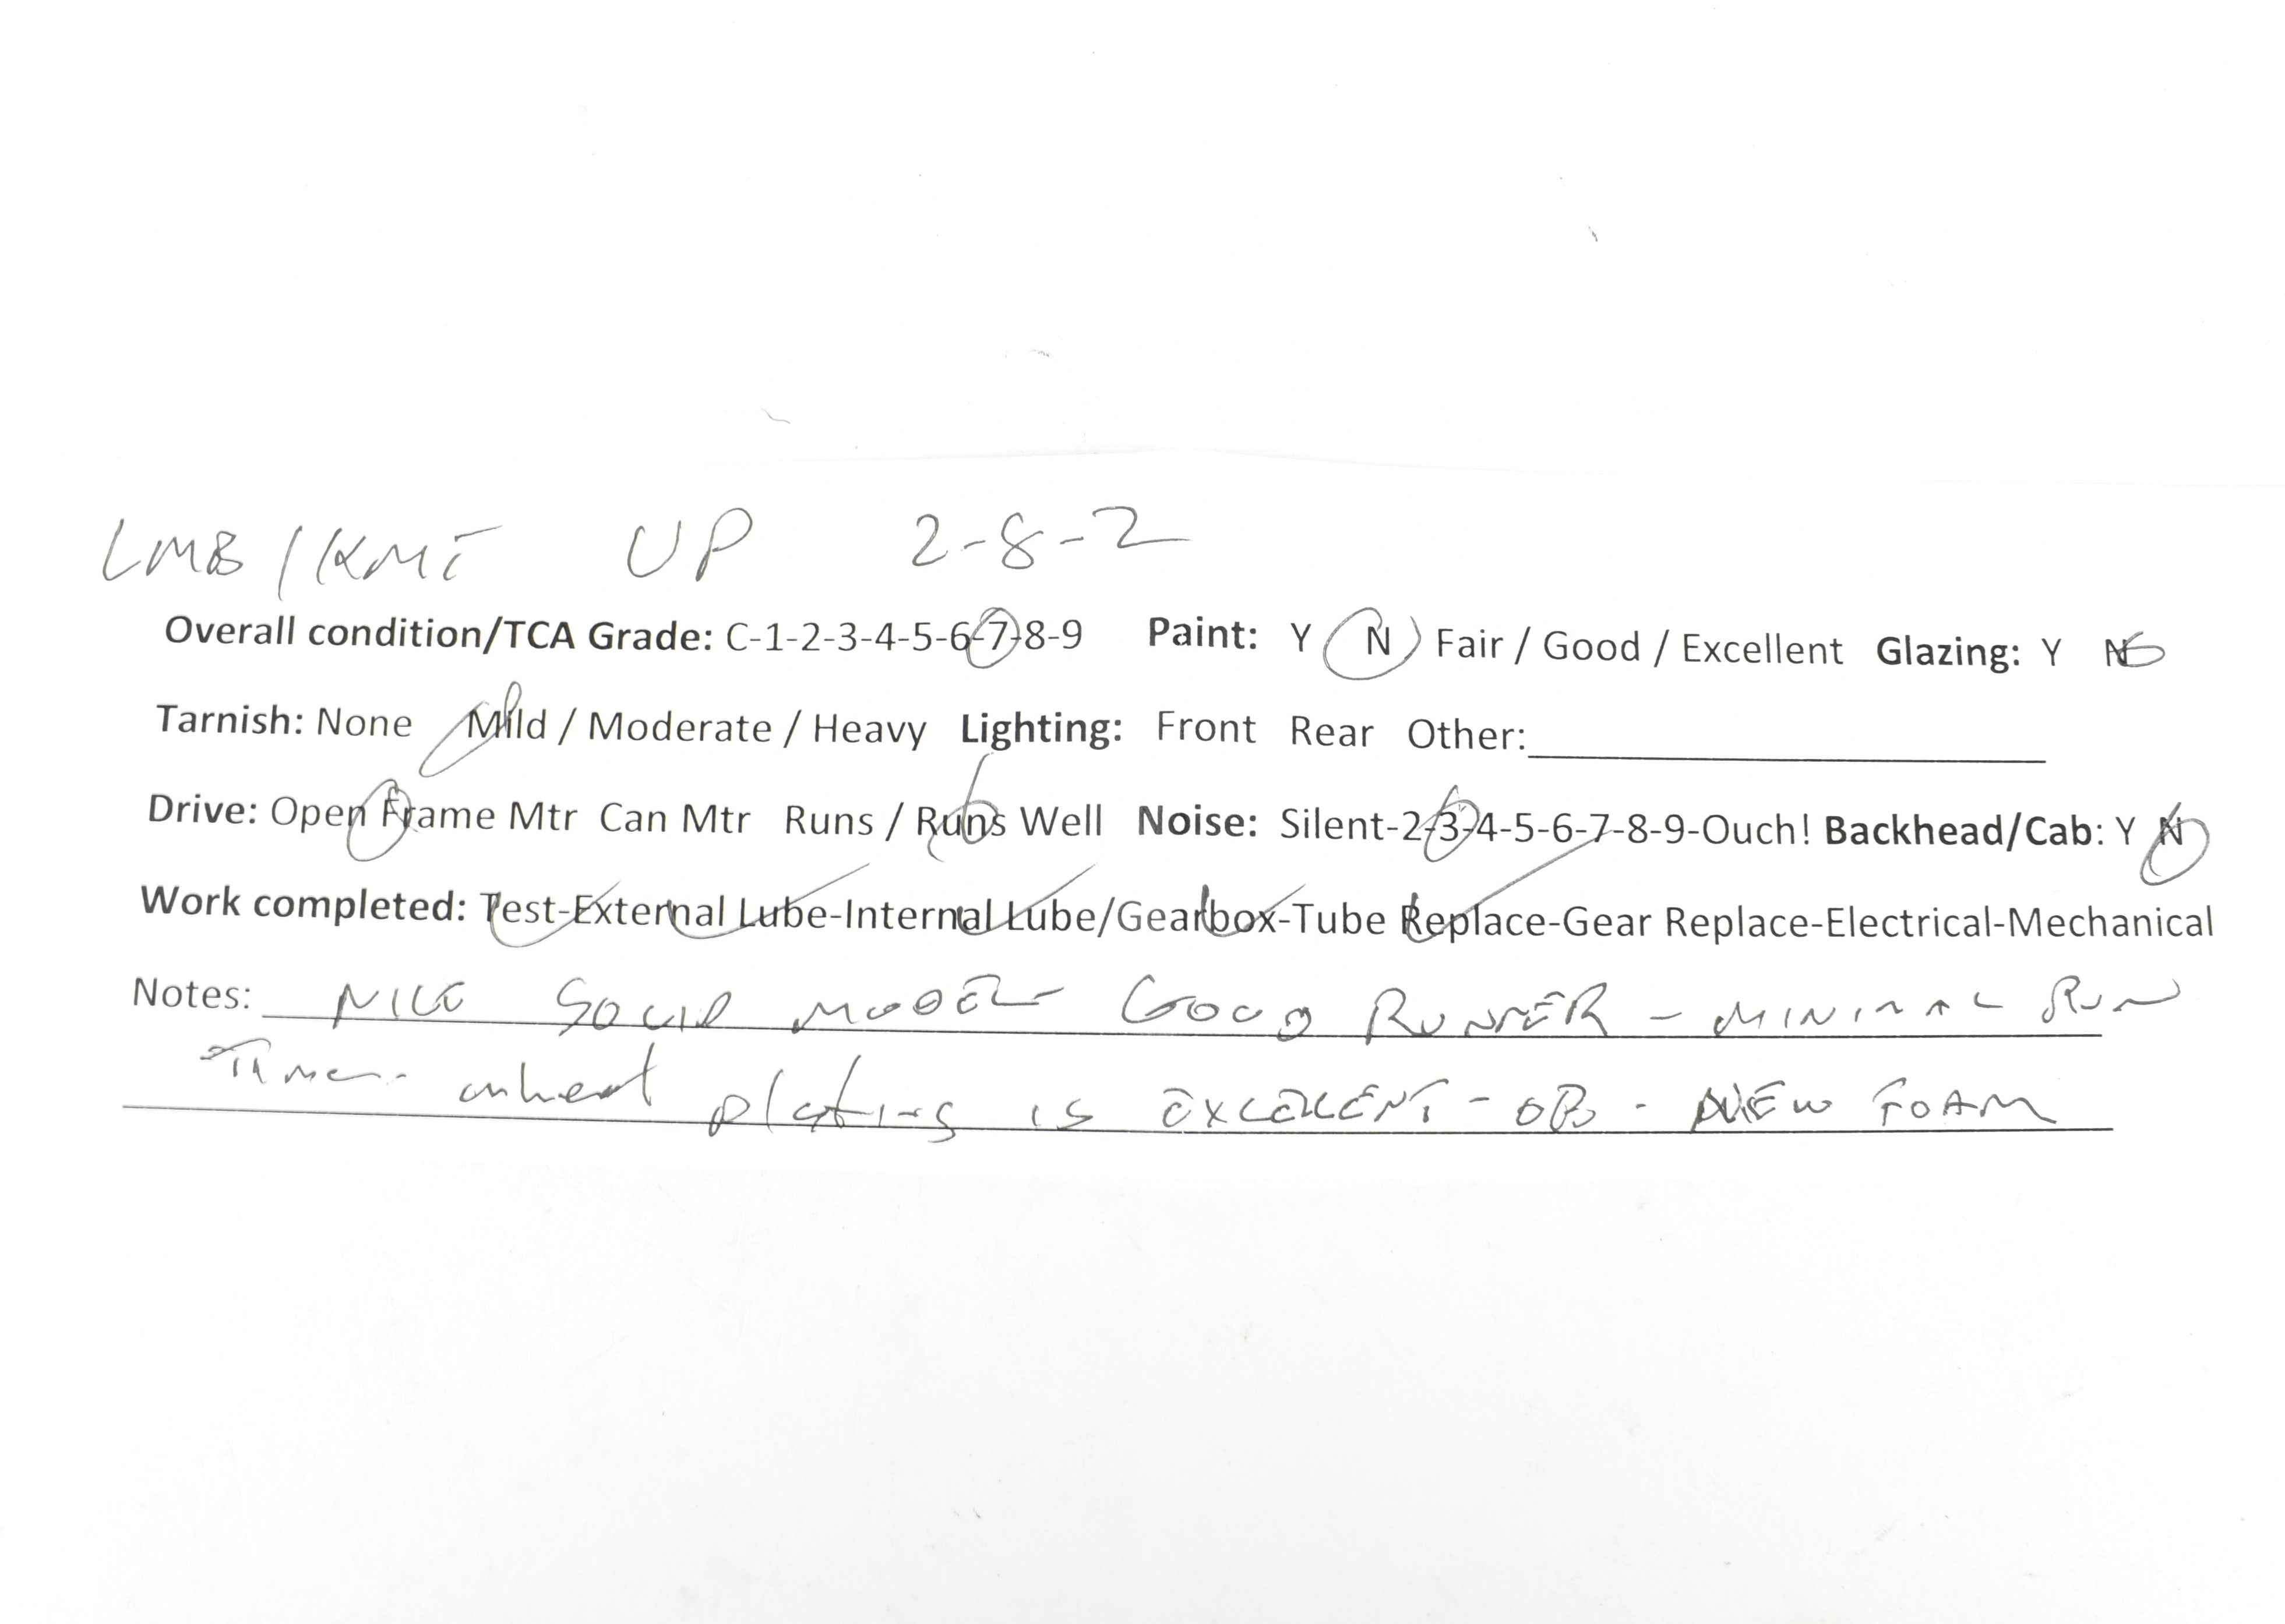 LMB/KMT UP 2-8-2
Overall condition/TCA Grade: C-1-2-3-4-5-6-7-8-9 Paint: Y N Fair / Good / Excellent Glazing: Y N
Tarnish: None / Mild / Moderate / Heavy Lighting: Front Rear Other:
Drive: Open Frame Mtr Can Mtr Runs / Runs Well Noise: Silent-2-3-4-5-6-7-8-9-Ouch! Backhead/Cab: Y N
Work completed: Test-External Lube-Internal Lube/Gearbox-Tube Replace-Gear Replace-Electrical-Mechanical
Notes: NICE SOLID MODEL GOOD RUNNER - MINIMAL RUN
Time. wheel plating is EXCELLENT - OB - NEW FOAM